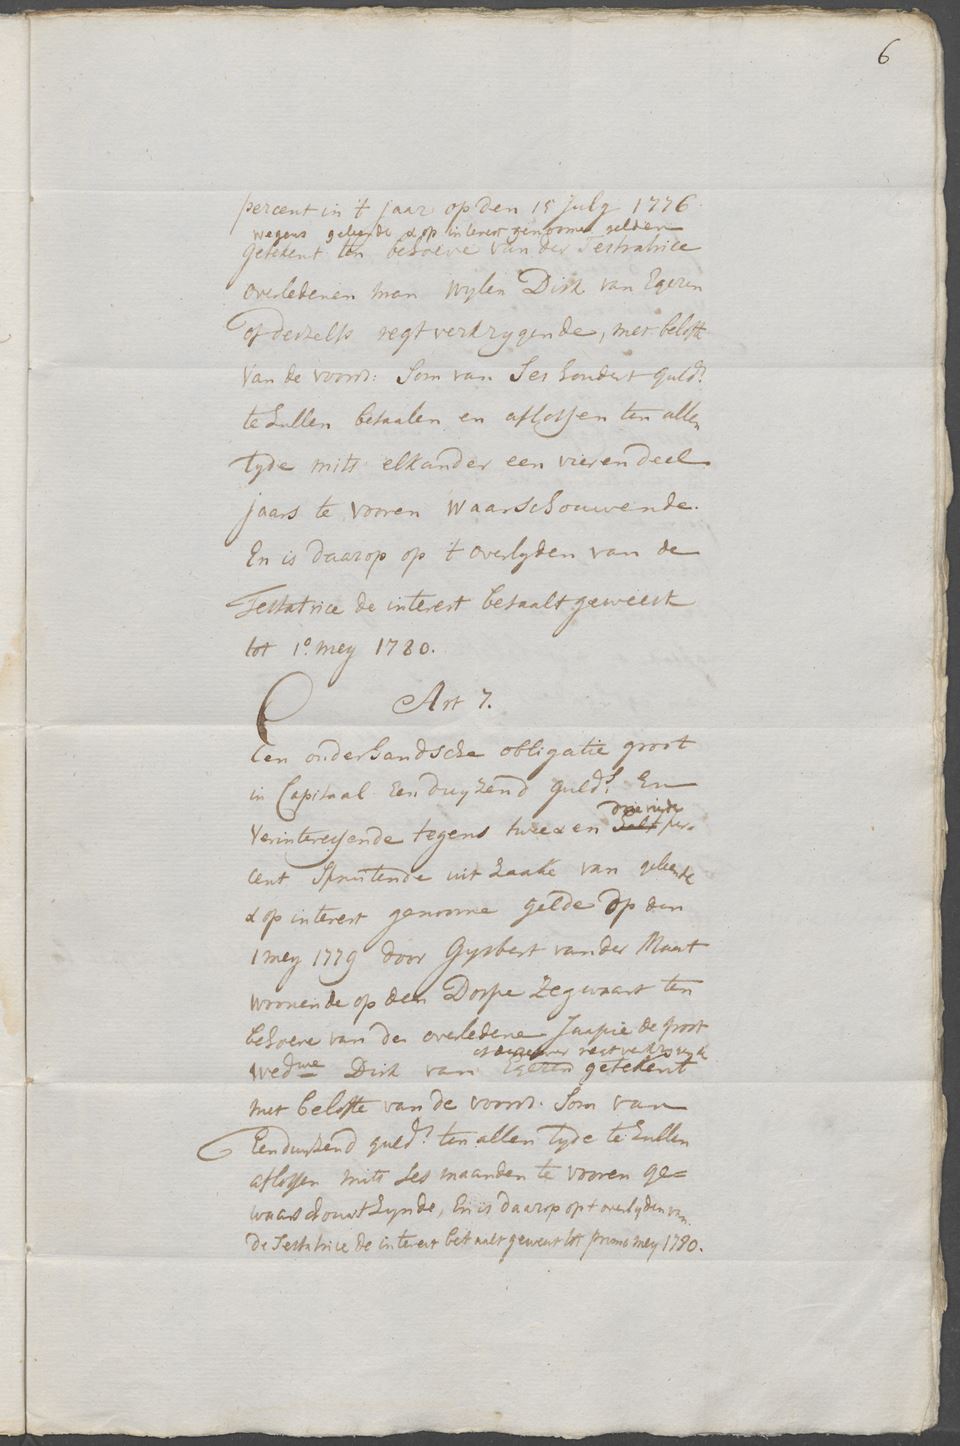 6
percent in 't jaar op den 15 july 1776
wegens geleende & op interest genoome gelden
getekent ten behoeve van der Testatrice
overledenen man wylen Dirk van Egeren
of deszelfs regtverkrygende, met belofte
van de voors: Som van Ses hondert guld:s
te Zullen betaalen en aflossen ten allen
tyde mits elkander een vierendeel
jaars te vooren waarschouwende.
En is daarop op 't overlyden van de
Testatrice de interest betaalt geweest
tot 1o. mey 1780.
Art 7.
Een onderhandsche obligatie groot
in Capitaal Een duyzend guld:s En
Verinteressende tegens twee & en drie vierde
half per-
cent Spruitende uit zaake van geleende
& op interest genoome gelde op den
1 mey 1779 door Gysbert van der Maat
woonende op den Dorpe Zegwaart ten
behoeve van de overledene Jaapie de Groot
wedwe Dirk van Egeren getekent
met belofte van de voors. Som van
Eenduyzend guld:s ten allen tyde te Zullen
aflossen mits Ses maanden te vooren ge=
waarschouwt Zynde, En is daarop op 't overlyden van
de Testatrice de interest betaalt geweest tot primo mey 1780.